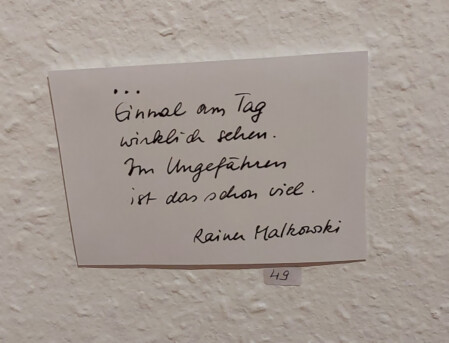 ...
Einmal am Tag
wirklich sehen.
Im Ungefähren
ist das schon viel.
Rainer Malkowski
49